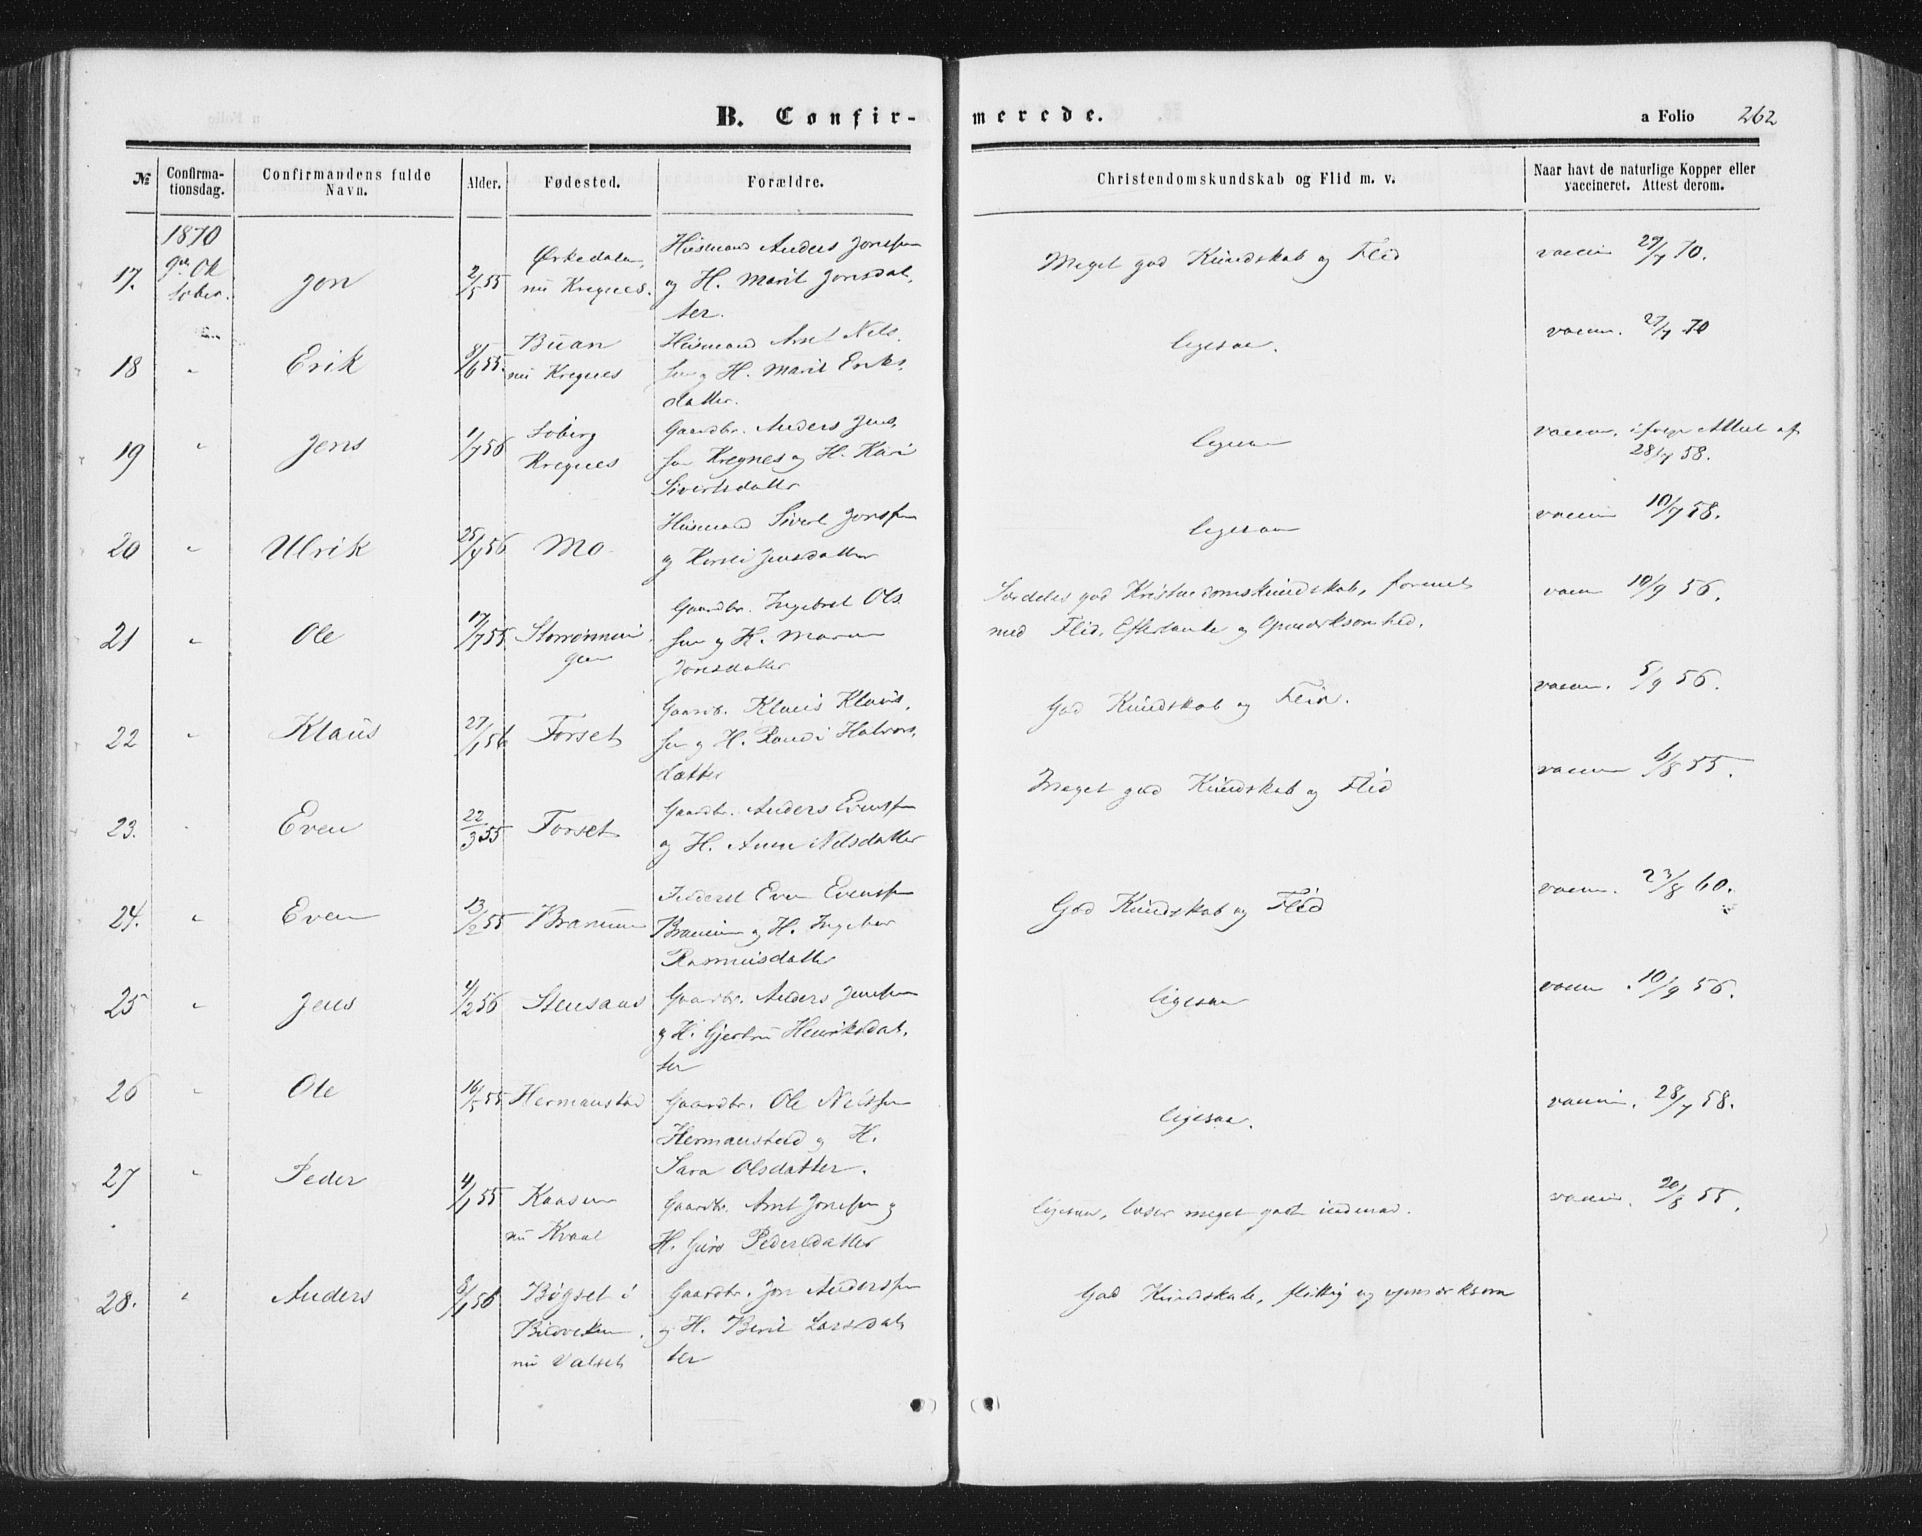 B. Confir-
merede.
a Folio 262
№
Confirma-
tionsdag.
Confirmandens fulde
Navn.
Alder.
Fødested.
Forældre.
Christendomskundskab og Flid m. v.
Naar havt de naturlige Kopper eller
vaccineret. Attest derom.
1870
9de Ok
tober.
17. Jon 2/5 55
Ørkedalen,
nu Kregnes.
Husmand Anders Jonssen
og H. Marit Jonsdat,
ter.
Meget god Kundskab og Flid
vaccin 29/7 70.
18 " Erik 8/6 55.
Buan
nu Kregnes
Husmand Arnt Nels,
sen og H. Marit Eriks,
datter.
ligesaa.
vaccin. 27/7 70
19 " Jens 1/7 56
Søberg
Kregnes
Gaardbr. Anders Jens,
sen Kregnes og H. Kari
Sivertsdatter
ligesaa
vaccin. ifølge Attest af
28/7 58.
20 " Ulrik 25/4 56 Mo
Husmand Sivert Jonssen
og Kirsti Jensdatter
ligesaa
vaccin 10/7 58.
21 " Ole 17/7 55
Gaardbr. Ingebret Ols
sen og H. Maren
Jonsdatter
Særdeles god Kristendomskundskab, forenet
med Flid, Eftertanke og Opmærksomhed.
vaccin 10/9 56.
22 " Klaus 27/1 56 Forset
Gaardb. Klaus Klaus,
sen og H. Randi Halvors,
datter
God Kundskab og Flid.
vaccin. 5/9 56.
23. " Even 22/3 55 Forset
Gaardbr. Anders Evenssen
og H. Anne Nelsdatter
Meget god Kundskab og Flid
vaccin 6/8 55.
24. " Even 13/2 55
Inderst Even Evenssen
og H. Ingebor
Rasmusdatter
God Kundskab og Flid
vaccin. 23/8 60.
25 " Jens 4/2 56 Stensaas
Gaardbr. Anders Jenssen
og H. Gjertru Henriksdat,
ter
ligesaa
vaccin. 10/9 56.
26 " Ole 16/5 55 Hermanstad
Gaardbr. Ole Nelssen
Hermanstad og H.
Sara Olsdatter.
ligesaa.
vaccin. 28/7 58.
27 " Peder 4/1 55
Kaasen
nu Kvaal
Gaardbr. Arnt Jonssen og
H. Guro Pedersdatter
ligesaa, læser meget godt indenad.
vaccin. 20/8 55.
28. " Anders 8/1 56
Bøgset i
nu Valset
Gaardbr. Jon Anderssen
og H. Berit Larsdat
ter
God Kundskab, flittig og opmærksom